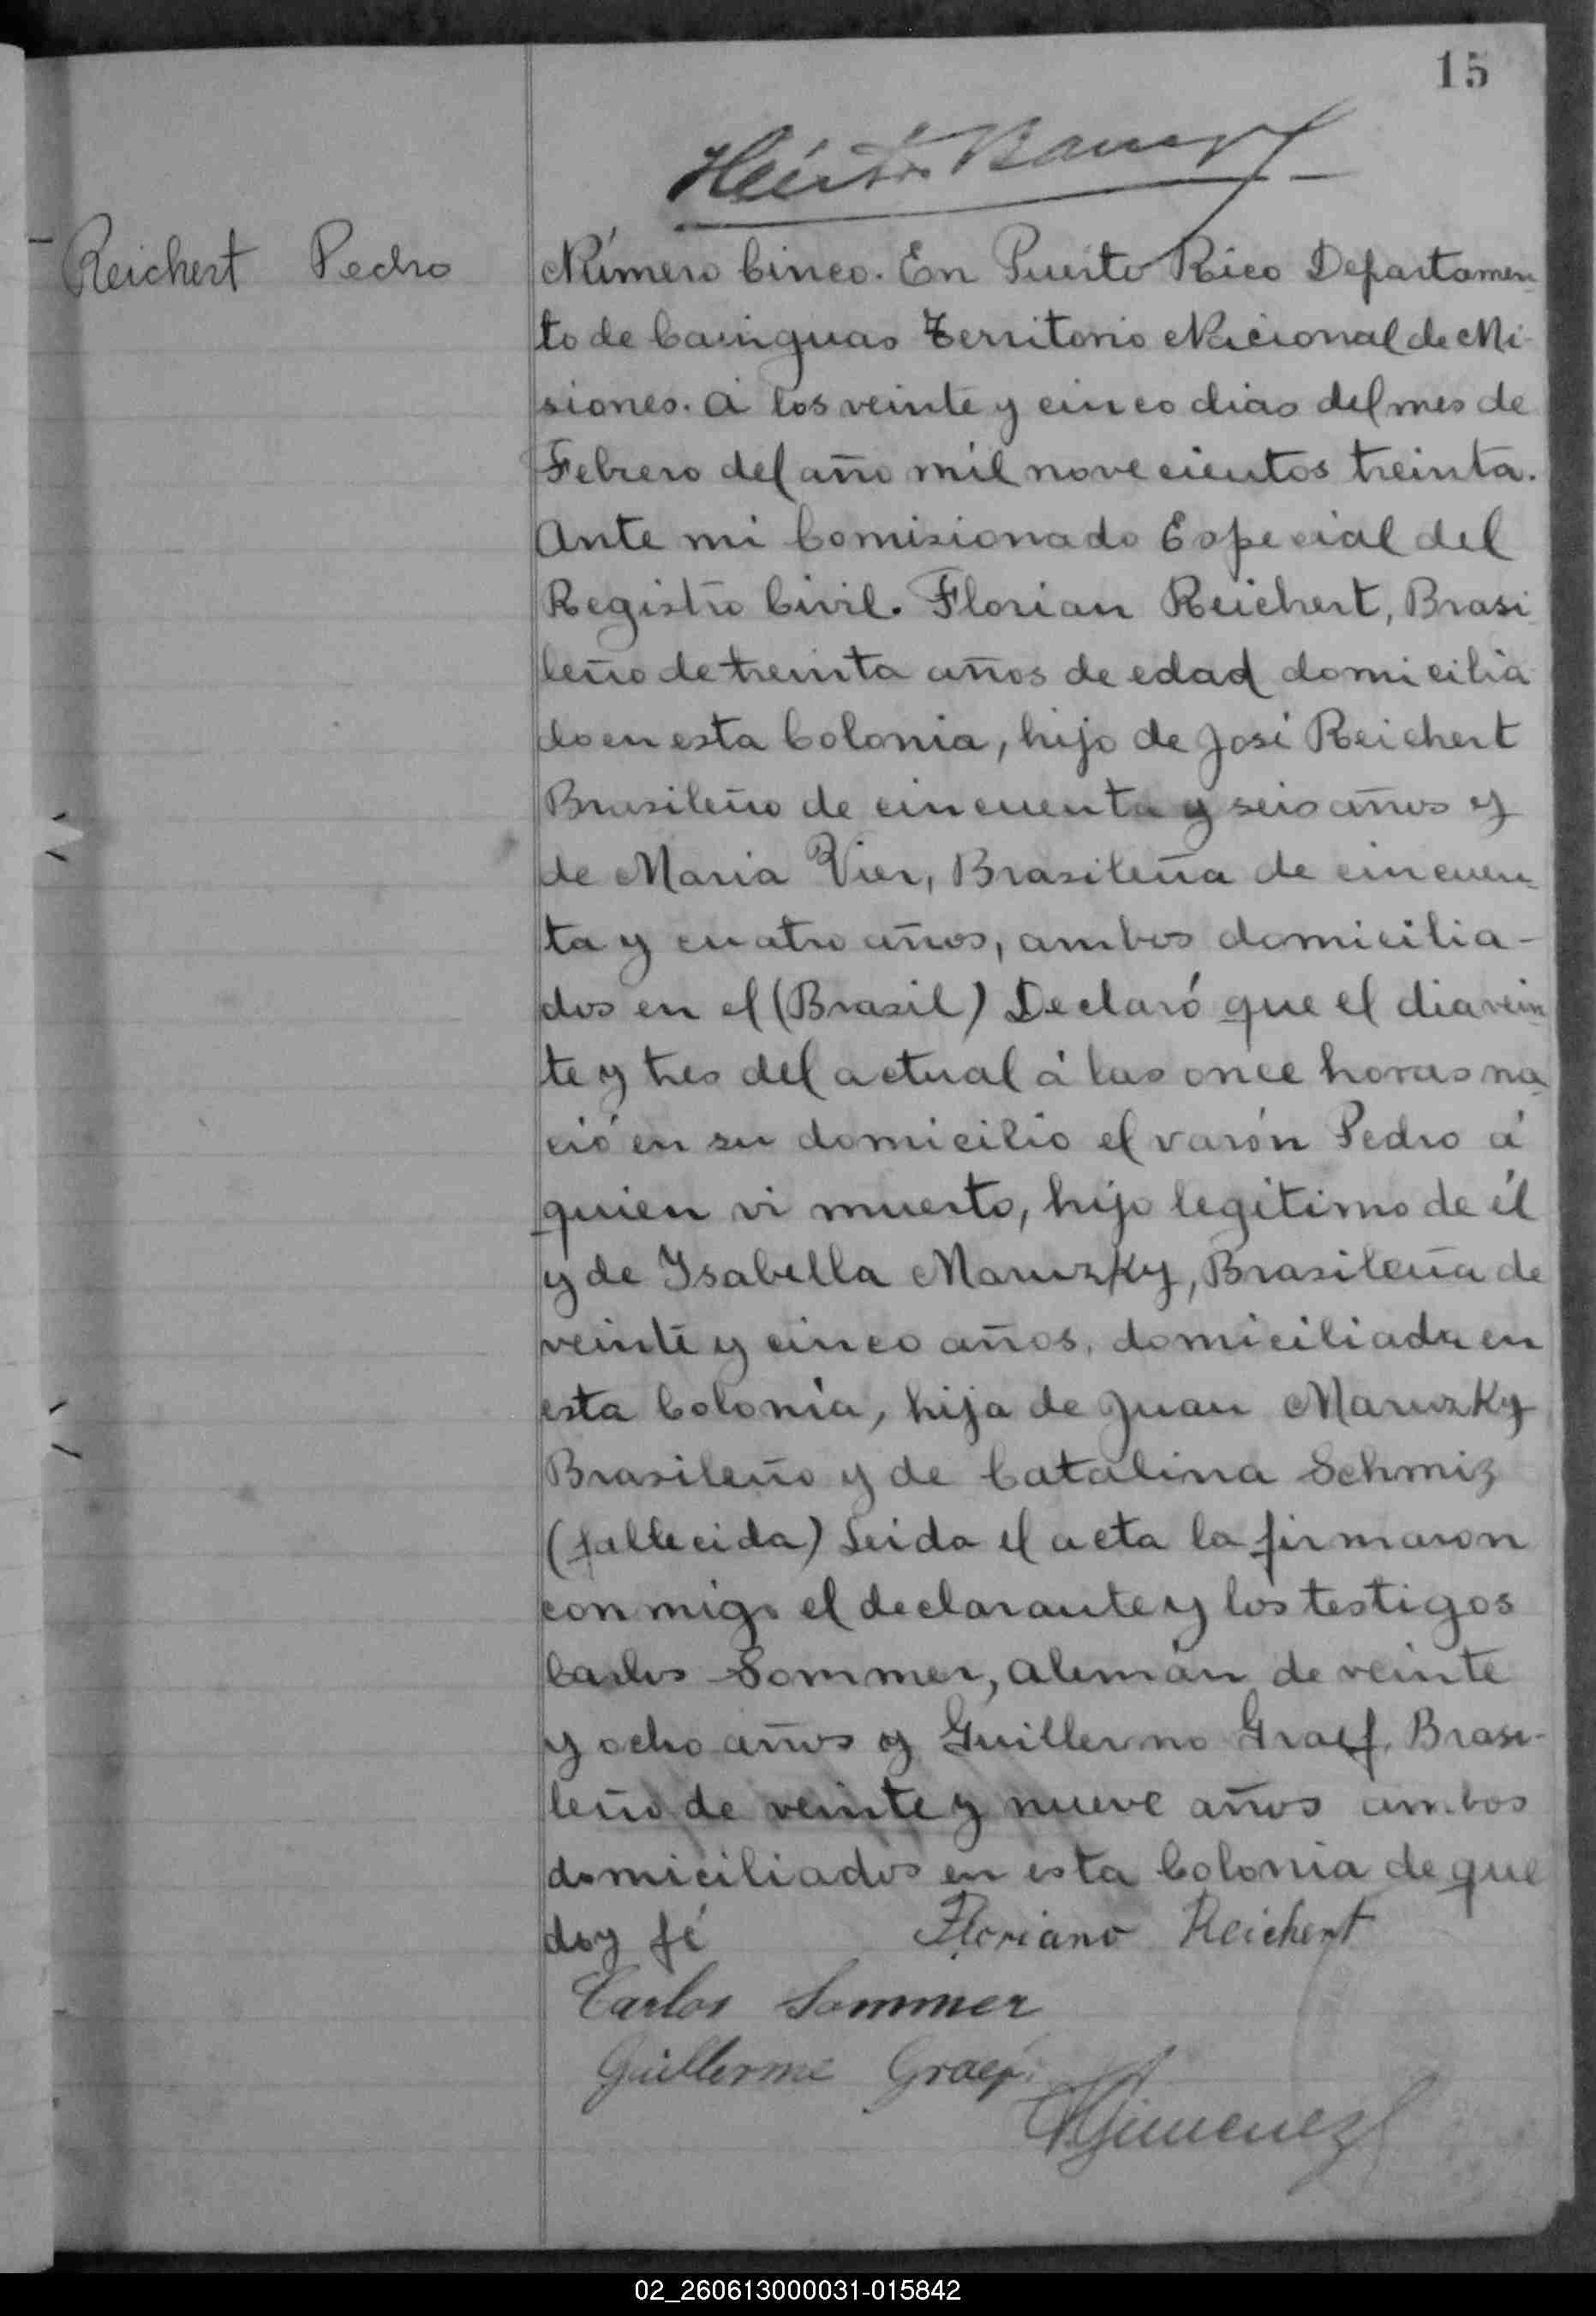 15
Reichert Pedro
Número Cinco. En Puerto Rico Departamen-
to de Cainguas Territorio Nacional de Mi-
siones. a los veinte y cinco dias del mes de
Febrero del año mil novecientos treinta.
Ante mi Comisionado Especial del
Registro Civil. Florian Reichert, Brasi
leño de treinta años de edad domicilia
do en esta Colonia, hijo de José Reichert
Brasileño de cincuenta y seis años y
de Maria Vier, Brasileña de cincuen-
ta y cuatro años, ambos domicilia-
dos en el (Brasil) Declaró que el dia vein
te y tres del actual á las once horas na
ció en su domicilio el varón Pedro á
quien vi muerto, hijo legítimo de él
y de Ysabella Maruzky, Brasileña de
veinte y cinco años, domiciliada en
esta Colonia, hija de Juan Maruzky
Brasileño y de Catalina Schmiz
(fallecida) Leida el acta la firmaron
conmigo el declarante y los testigos
Carlos Sommer, alemán de veinte
y ocho años y Guillermo Graef, Brasi-
leño de veinte y nueve años ambos
domiciliados en esta Colonia de que
doy fé Floriano Reichert
Carlos Sommer
Guillerme Graef.
Gimenez
02_260613000031-015842